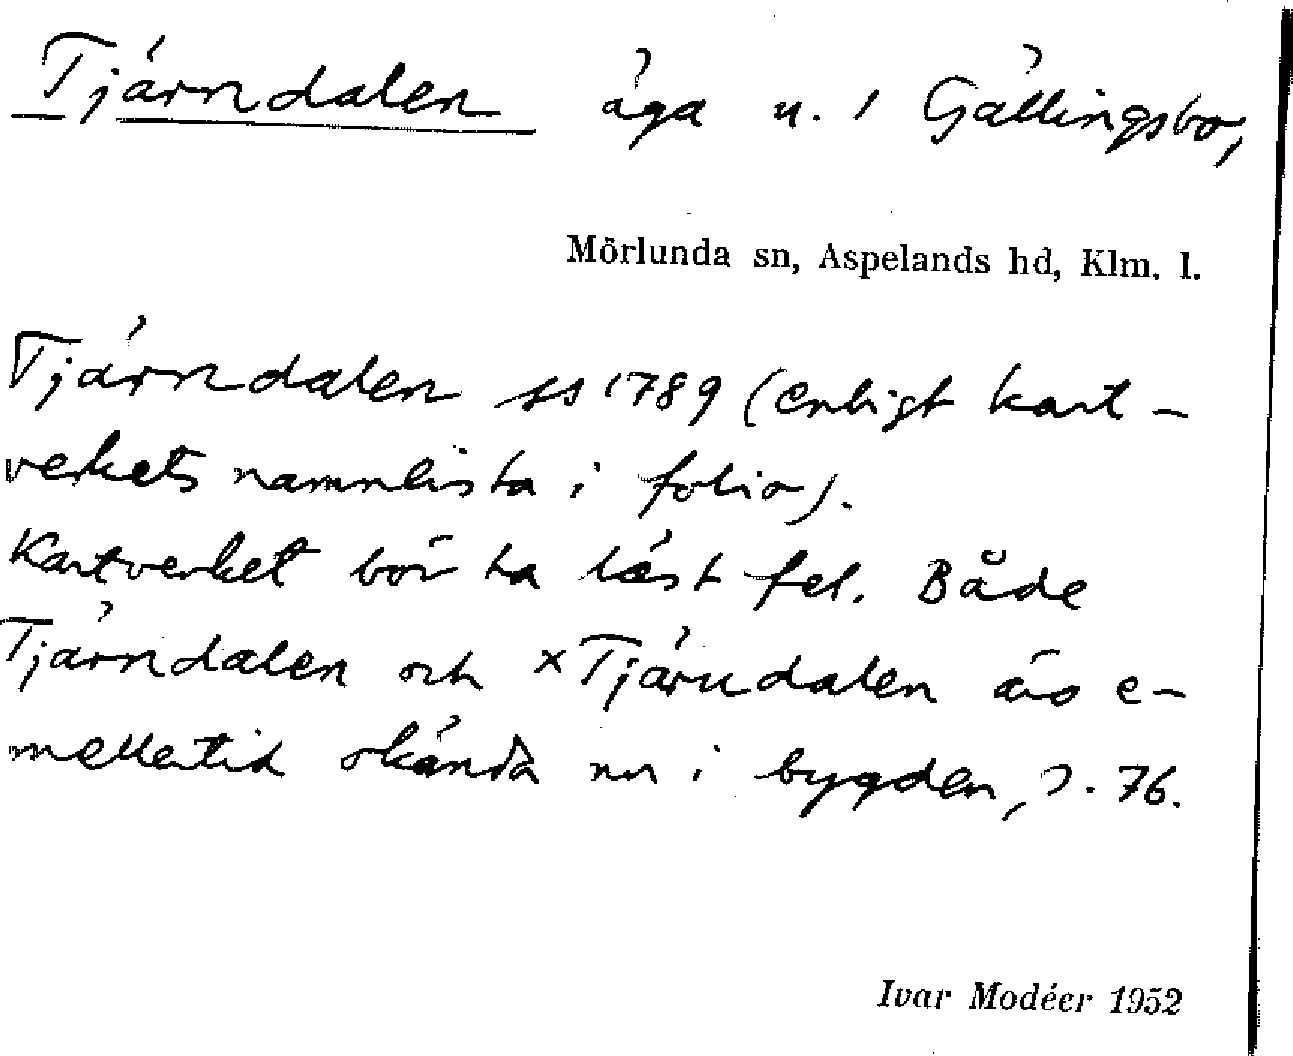 Tjärndalen äga u. 1 Gällingsbo,
Mörlunda sn, Aspelands hd, Klm. l.
Tjärndalen ss 1789 (enligt kart-
verkets namnlista i folio).
Kartverket bör ha läst fel. Både
Tjärndalen och ˣTjärudalen äro e-
mellertid okända nu i bygden, 76.
Ivar Modéer 1952